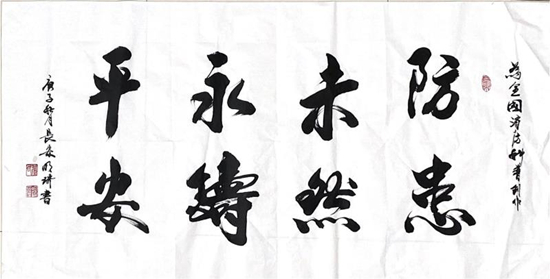 為全國消防科普創作
防患
未然
永鑄
平安
庚子秋月長安明琦書